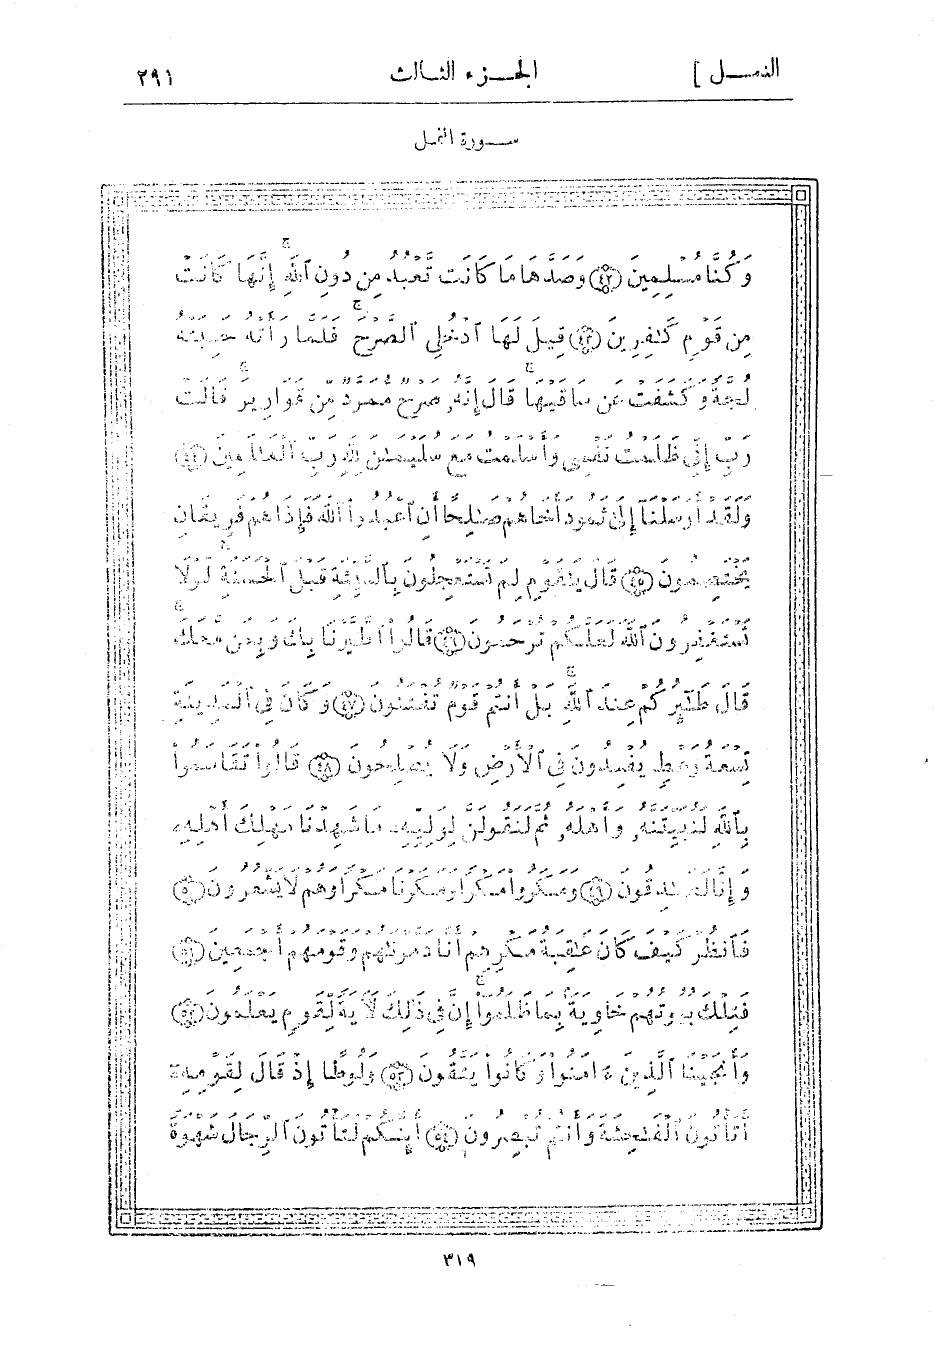 النمل ] الجزء الثالث ٢٩١
سورة النمل
وَكُنَّا مُسْلِمِينَ ﴿٤٢﴾ وَصَدَّهَا مَا كَانَت تَّعْبُدُ مِن دُونِ ٱللَّهِ ۖ إِنَّهَا كَانَتْ
مِن قَوْمٍ كَٰفِرِينَ ﴿٤٣﴾ قِيلَ لَهَا ٱدْخُلِى ٱلصَّرْحَ ۖ فَلَمَّا رَأَتْهُ حَسِبَتْهُ
لُجَّةً وَكَشَفَتْ عَن سَاقَيْهَا ۚ قَالَ إِنَّهُۥ صَرْحٌ مُّمَرَّدٌ مِّن قَوَارِيرَ ۗ قَالَتْ
رَبِّ إِنِّى ظَلَمْتُ نَفْسِى وَأَسْلَمْتُ مَعَ سُلَيْمَٰنَ لِلَّهِ رَبِّ ٱلْعَٰلَمِينَ ﴿٤٤﴾
وَلَقَدْ أَرْسَلْنَآ إِلَىٰ ثَمُودَ أَخَاهُمْ صَٰلِحًا أَنِ ٱعْبُدُوا۟ ٱللَّهَ فَإِذَا هُمْ فَرِيقَانِ
يَخْتَصِمُونَ ﴿٤٥﴾ قَالَ يَٰقَوْمِ لِمَ تَسْتَعْجِلُونَ بِٱلسَّيِّئَةِ قَبْلَ ٱلْحَسَنَةِ ۖ لَوْلَا
تَسْتَغْفِرُونَ ٱللَّهَ لَعَلَّكُمْ تُرْحَمُونَ ﴿٤٦﴾ قَالُوا۟ ٱطَّيَّرْنَا بِكَ وَبِمَن مَّعَكَ ۚ
قَالَ طَٰٓئِرُكُمْ عِندَ ٱللَّهِ ۖ بَلْ أَنتُمْ قَوْمٌ تُفْتَنُونَ ﴿٤٧﴾ وَكَانَ فِى ٱلْمَدِينَةِ
تِسْعَةُ رَهْطٍ يُفْسِدُونَ فِى ٱلْأَرْضِ وَلَا يُصْلِحُونَ ﴿٤٨﴾ قَالُوا۟ تَقَاسَمُوا۟
بِٱللَّهِ لَنُبَيِّتَنَّهُۥ وَأَهْلَهُۥ ثُمَّ لَنَقُولَنَّ لِوَلِيِّهِۦ مَا شَهِدْنَا مَهْلِكَ أَهْلِهِۦ
وَإِنَّا لَصَٰدِقُونَ ﴿٤٩﴾ وَمَكَرُوا۟ مَكْرًا وَمَكَرْنَا مَكْرًا وَهُمْ لَا يَشْعُرُونَ ﴿٥٠﴾
فَٱنظُرْ كَيْفَ كَانَ عَٰقِبَةُ مَكْرِهِمْ أَنَّا دَمَّرْنَٰهُمْ وَقَوْمَهُمْ أَجْمَعِينَ ﴿٥١﴾
فَتِلْكَ بُيُوتُهُمْ خَاوِيَةًۢ بِمَا ظَلَمُوٓا۟ ۗ إِنَّ فِى ذَٰلِكَ لَءَايَةً لِّقَوْمٍ يَعْلَمُونَ ﴿٥٢﴾
وَأَنجَيْنَا ٱلَّذِينَ ءَامَنُوا۟ وَكَانُوا۟ يَتَّقُونَ ﴿٥٣﴾ وَلُوطًا إِذْ قَالَ لِقَوْمِهِۦٓ
أَتَأْتُونَ ٱلْفَٰحِشَةَ وَأَنتُمْ تُبْصِرُونَ ﴿٥٤﴾ أَئِنَّكُمْ لَتَأْتُونَ ٱلرِّجَالَ شَهْوَةً
٣١٩